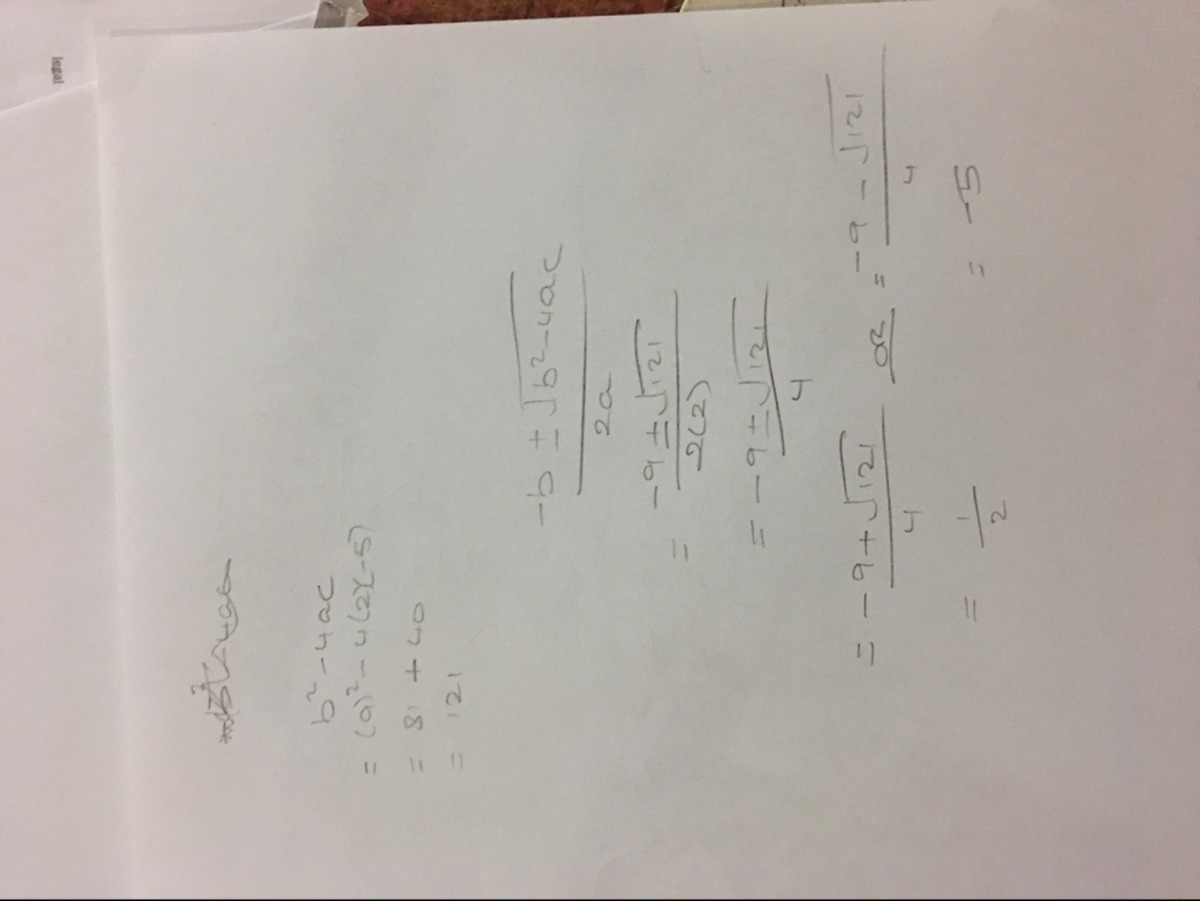 legal
b² - 4ac
= (9)² - 4(2)(-5)
= 81 + 40
= 121
-b ± √b² - 4ac
2a
= -9 ± √121
2(2)
= -9 ± √121
4
= -9 + √121 or = -9 - √121
4 4
= 1 = -5
2